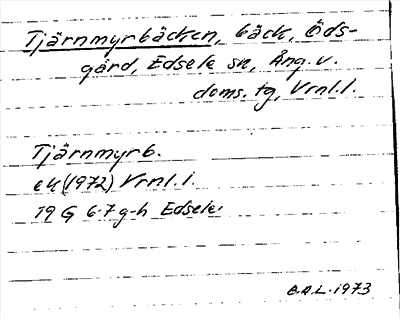 Tjärnmyrbäcken, bäck, Öds-
gård, Edsele sn, Ång. v.
doms. tg, Vrnl. l.
Tjärnmyrb.
ek (1972) Vrnl. l.
19 G 6-7 g-h Edsele
B.A.L. 1973